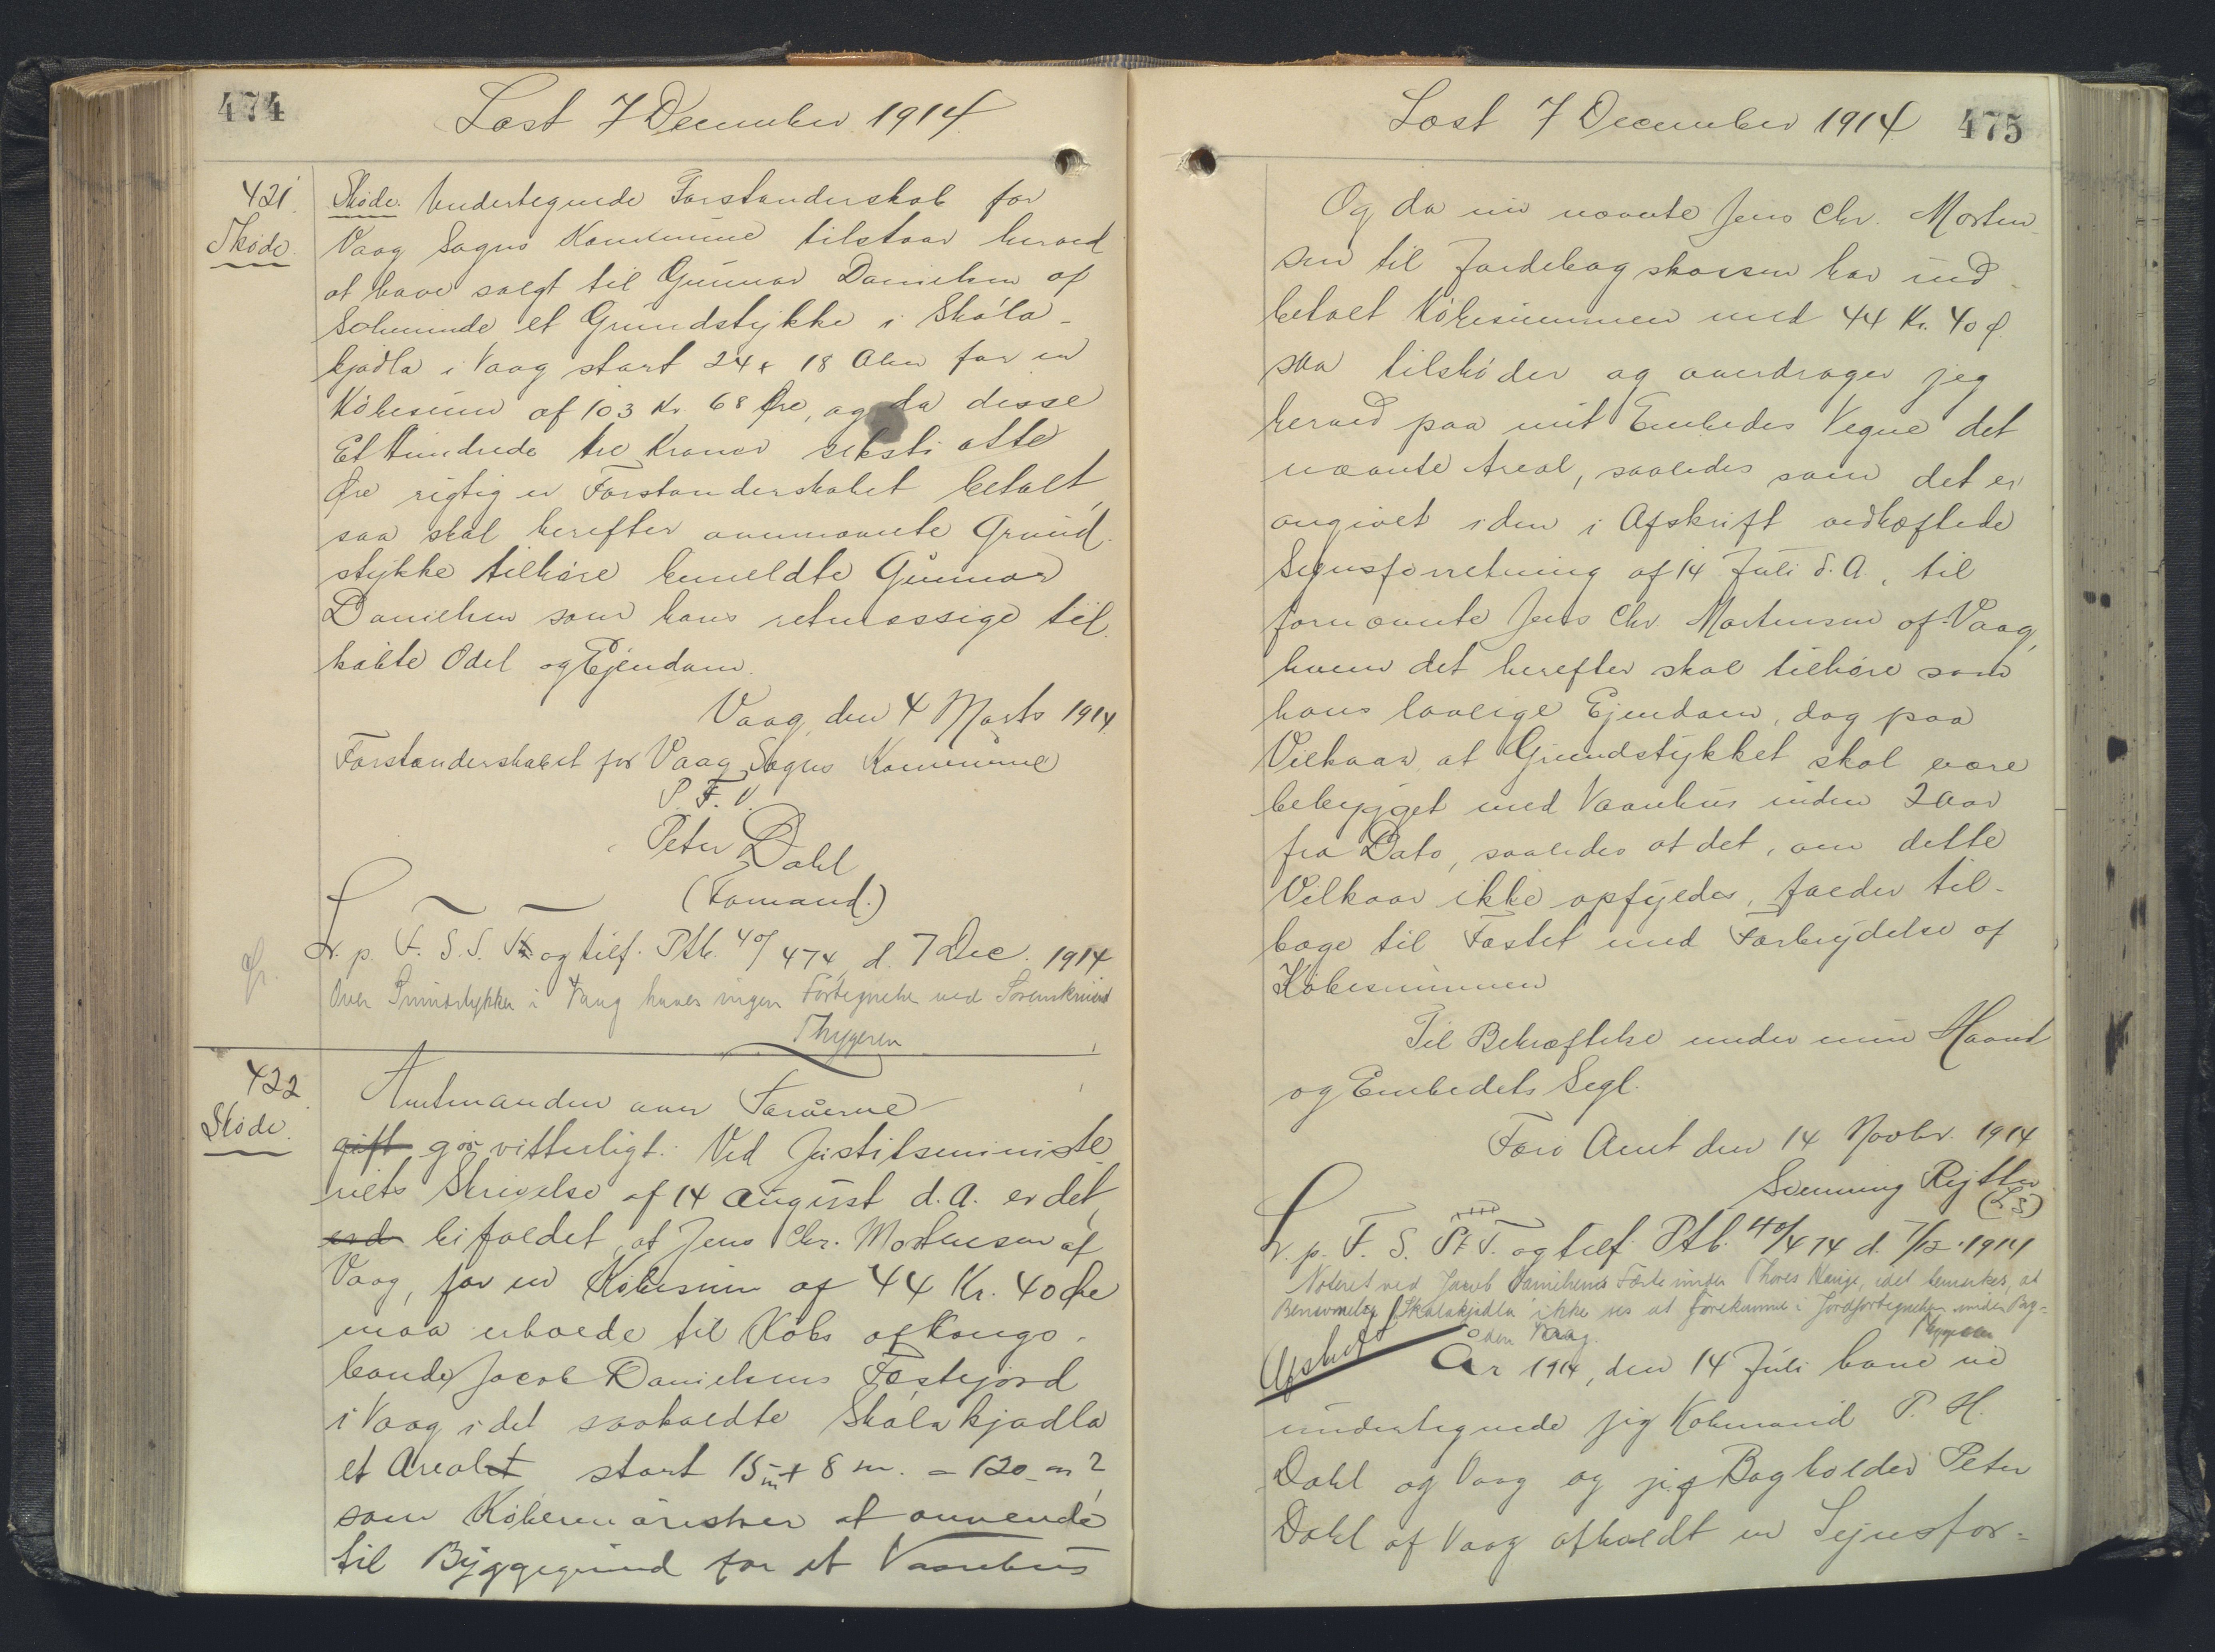 474
Læst 7 December 1914
421.
Skøde.
Skøde. Undertegnede Forstanderskab for
Vaag Sogns Kommune tilstaar herved
at have solgt til Gunnar Danielsen af
Sohmunde et Grundstykke i Skála-
kjadla i Vaag stort 24 x 18 Alen for en
Købesum af 103 Kr. 68 Øre, og da disse
Et hundrede tre Kroner seksti otte
Øre rigtig er Forstanderskabet betalt,
saa skal herefter ovennævnte Grund-
stykke tilhøre bemeldte Gunnar
Danielsen som hans retmæssige til-
købte Odel og Ejendom.
Vaag, den 4 Marts 1914
Forstanderskabet for Vaag Sogns Kommune
P. F. V.
Peter Dahl
(Fomand.)
L. p. F. S. S. og tilf. Ptb. 40/474 d. 7 Dec. 1914
Over Grundstykker i Vaag haves ingen Fortegnelse ved Sorenskriveri
Thygesen
422.
Skøde.
Amtmanden over Færøerne
gift gør vitterligt: Ved Justitsministe-
riets Skrivelse af 14 August d. A. er det
bifaldet, at Jens Chr. Mortensen af
Vaag, for en Købesum af 44 Kr. 40 Øre
maa erholde til Købs af Kongs-
bonde Jacob Danielsens Fæstejord
i Vaag i det saakaldte Skálakjadla
et Arealet stort 15 m x 8 m. = 120 m2,
som Køberen ønsker at anvende
til Byggegrund for et Vaanhus
Læst 7 December 1914
475
Og da nu nævnte Jens Chr. Morten-
sen til Jordebogskassen har ind-
betalt Købesummen med 44 Kr. 40 Ø.
saa tilskøder og overdrager jeg
herved paa mit Embedes Vegne det
nævnte Areal, saaledes som det er
angivet i den i Afskrift vedhæftede
Synsforretning af 14 Juli d. A., til
fornævnte Jens Chr. Mortensen af Vaag,
hvem det herefter skal tilhøre som
hans lovlige Ejendom, dog paa
Vilkaar, at Grundstykket skal være
bebygget med Vaanhus inden 2 Aar
fra Dato, saaledes at det, om dette
Vilkaar ikke opfyldes, falder til-
bage til Fæstet med Forbrydelse af
Købesummen
Til Bekræftelse under min Haand
og Embedets Segl.
Færø Amt den 14 Novbr. 1914
Svenning Rytter
(L S)
L. p. F. S. Pt. T. og tilf. Ptb. 40/474 d. 7/12 1914
Noteret ved Jacob Danielsens Fæste under Thores Kongs, idet bemærkes, at
Benævnelsen Skalakjadla ikke ses at forekomme i Jordfortegnelsen under Byg-
den Vaag.
Thygesen
Afskrift
År 1914, den 14 Juli have vi
undertegnede jeg Købmand P. H.
Dahl og Vaag og jeg Bogholder Peter
Dahl af Vaag afholdt en Synsfor-